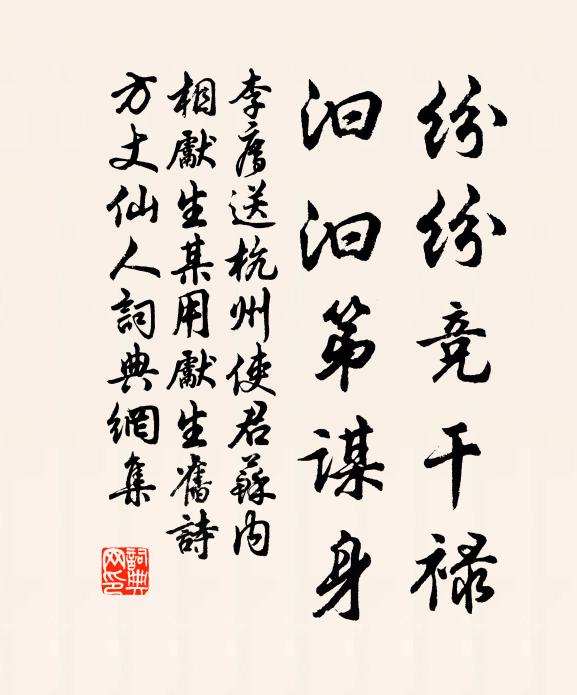 纷纷竞干禄
汩汩第谋身
李廌送杭州使君苏内
相献生某用献生旧诗
方丈仙人词典网集
词典网印